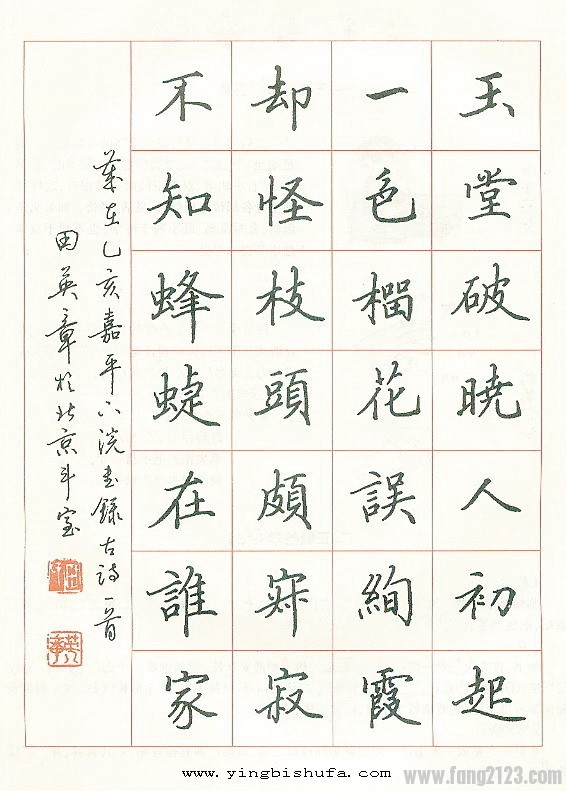 玉堂破曉人初起
一色榴花誤絢霞
却怪枝頭頗寂寂
不知蜂蜨在誰家
歲在乙亥嘉平下浣書錄古詩一首
田英章於北京斗室
www.yingbishufa.com
www.fang2123.com